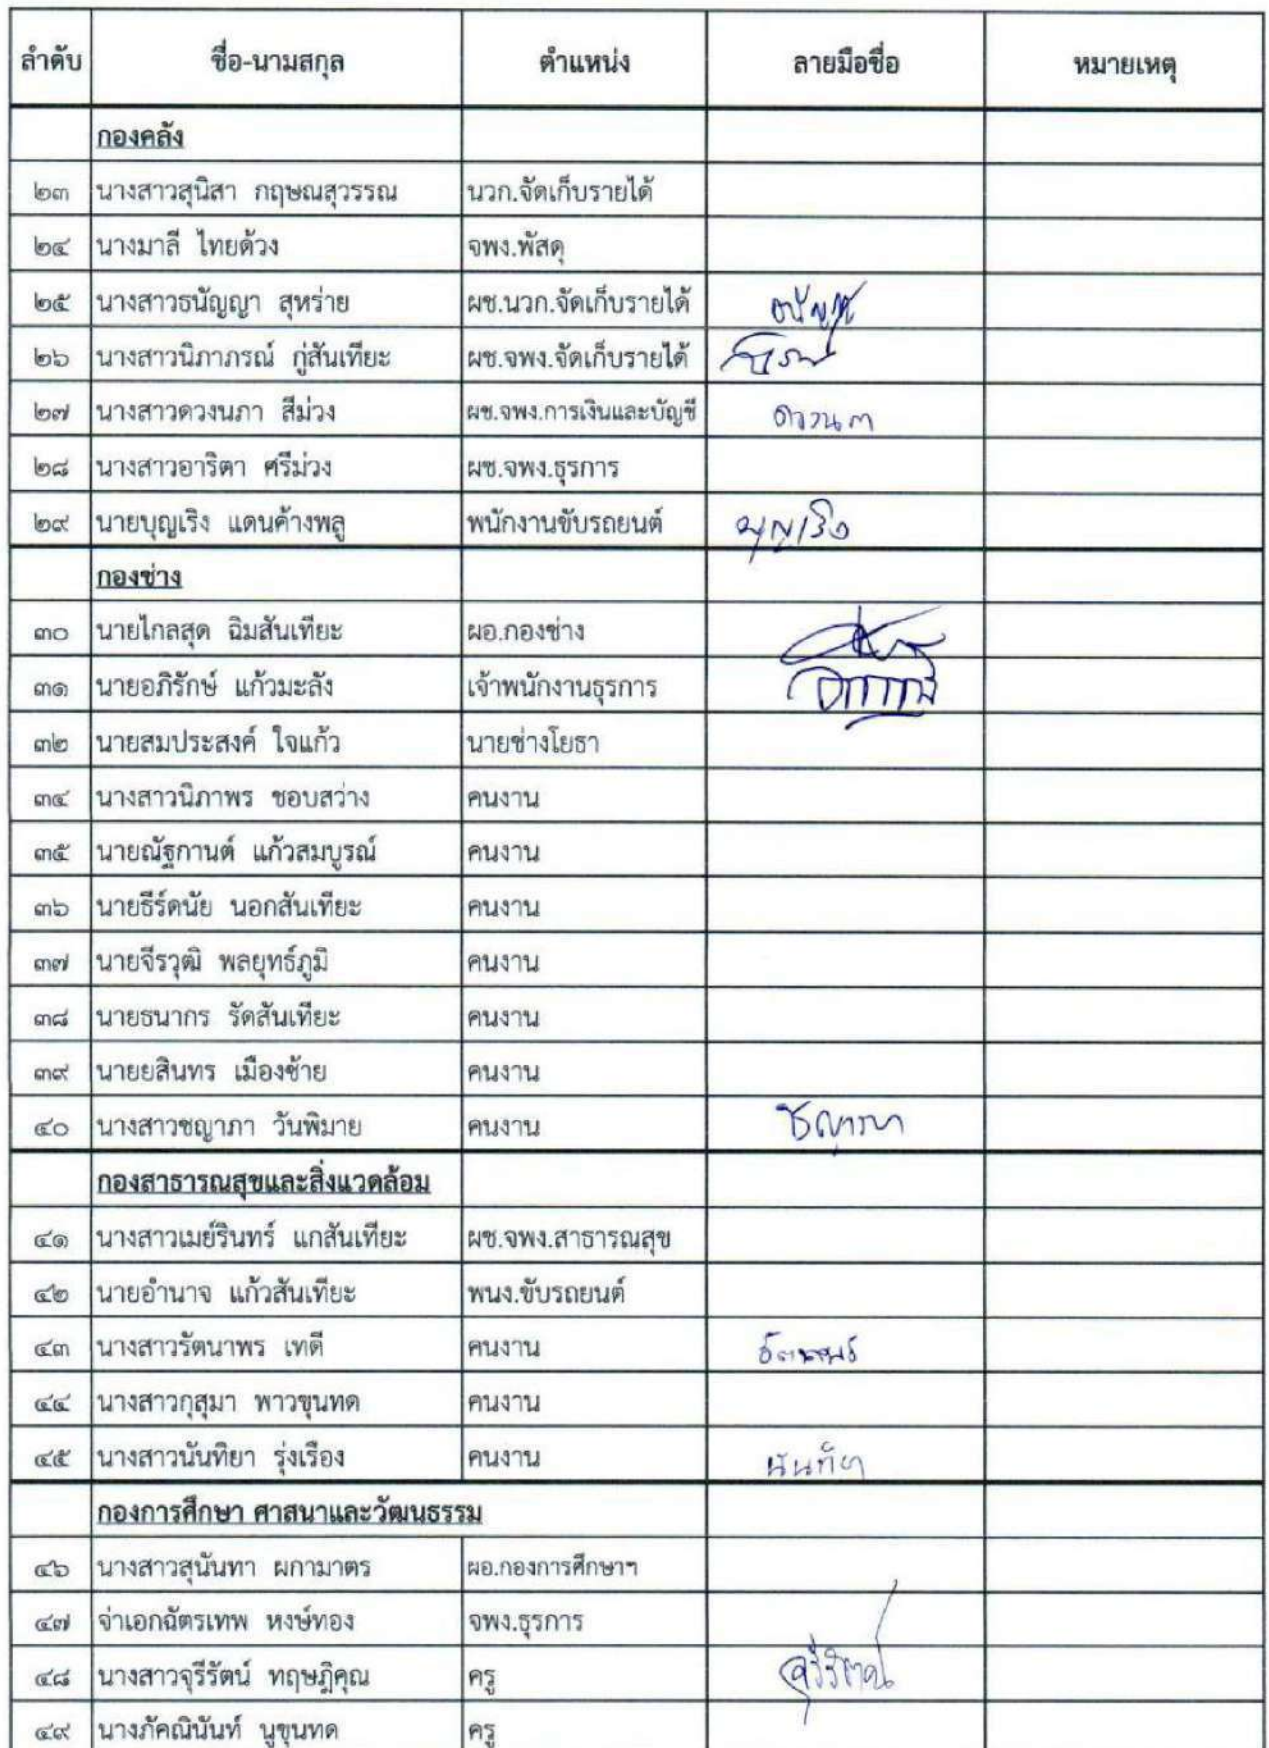 ลำดับ ชื่อ-นามสกุล ตำแหน่ง ลายมือชื่อ หมายเหตุ
กองคลัง
๒๓ นางสาวสุนิสา กฤษณสุวรรณ นวก.จัดเก็บรายได้
๒๔ นางมาลี ไทยด้วง จพง.พัสดุ
๒๕ นางสาวธนัญญา สุหร่าย ผช.นวก.จัดเก็บรายได้ ธนัญญา
๒๖ นางสาวนิภาภรณ์ กู่สันเทียะ ผช.จพง.จัดเก็บรายได้
๒๗ นางสาวดวงนภา สีม่วง ผช.จพง.การเงินและบัญชี ดวงนภา
๒๘ นางสาวอาริตา ศรีม่วง ผช.จพง.ธุรการ
๒๙ นายบุญเริง แดนค้างพลู พนักงานขับรถยนต์ บุญเริง
กองช่าง
๓๐ นายไกลสุด ฉิมสันเทียะ ผอ.กองช่าง
๓๑ นายอภิรักษ์ แก้วมะลัง เจ้าพนักงานธุรการ
๓๒ นายสมประสงค์ ใจแก้ว นายช่างโยธา
๓๔ นางสาวนิภาพร ชอบสว่าง คนงาน
๓๕ นายณัฐกานต์ แก้วสมบูรณ์ คนงาน
๓๖ นายธีร์ดนัย นอกสันเทียะ คนงาน
๓๗ นายจีรวุฒิ พลยุทธ์ภูมิ คนงาน
๓๘ นายธนากร รัดสันเทียะ คนงาน
๓๙ นายยสินทร เมืองซ้าย คนงาน
๔๐ นางสาวชญาภา วันพิมาย คนงาน ชญาภา
กองสาธารณสุขและสิ่งแวดล้อม
๔๑ นางสาวเมย์รินทร์ แกสันเทียะ ผช.จพง.สาธารณสุข
๔๒ นายอำนาจ แก้วสันเทียะ พนง.ขับรถยนต์
๔๓ นางสาวรัตนาพร เทดี คนงาน รัตนาพร
๔๔ นางสาวกุสุมา พาวขุนทด คนงาน
๔๕ นางสาวนันทิยา รุ่งเรือง คนงาน นันทิยา
กองการศึกษา ศาสนาและวัฒนธรรม
๔๖ นางสาวสุนันทา ผกามาตร ผอ.กองการศึกษาฯ
๔๗ จ่าเอกฉัตรเทพ หงษ์ทอง จพง.ธุรการ
๔๘ นางสาวจุรีรัตน์ ทฤษฎิคุณ ครู จุรีรัตน์
๔๙ นางภัคณินันท์ นูขุนทด ครู